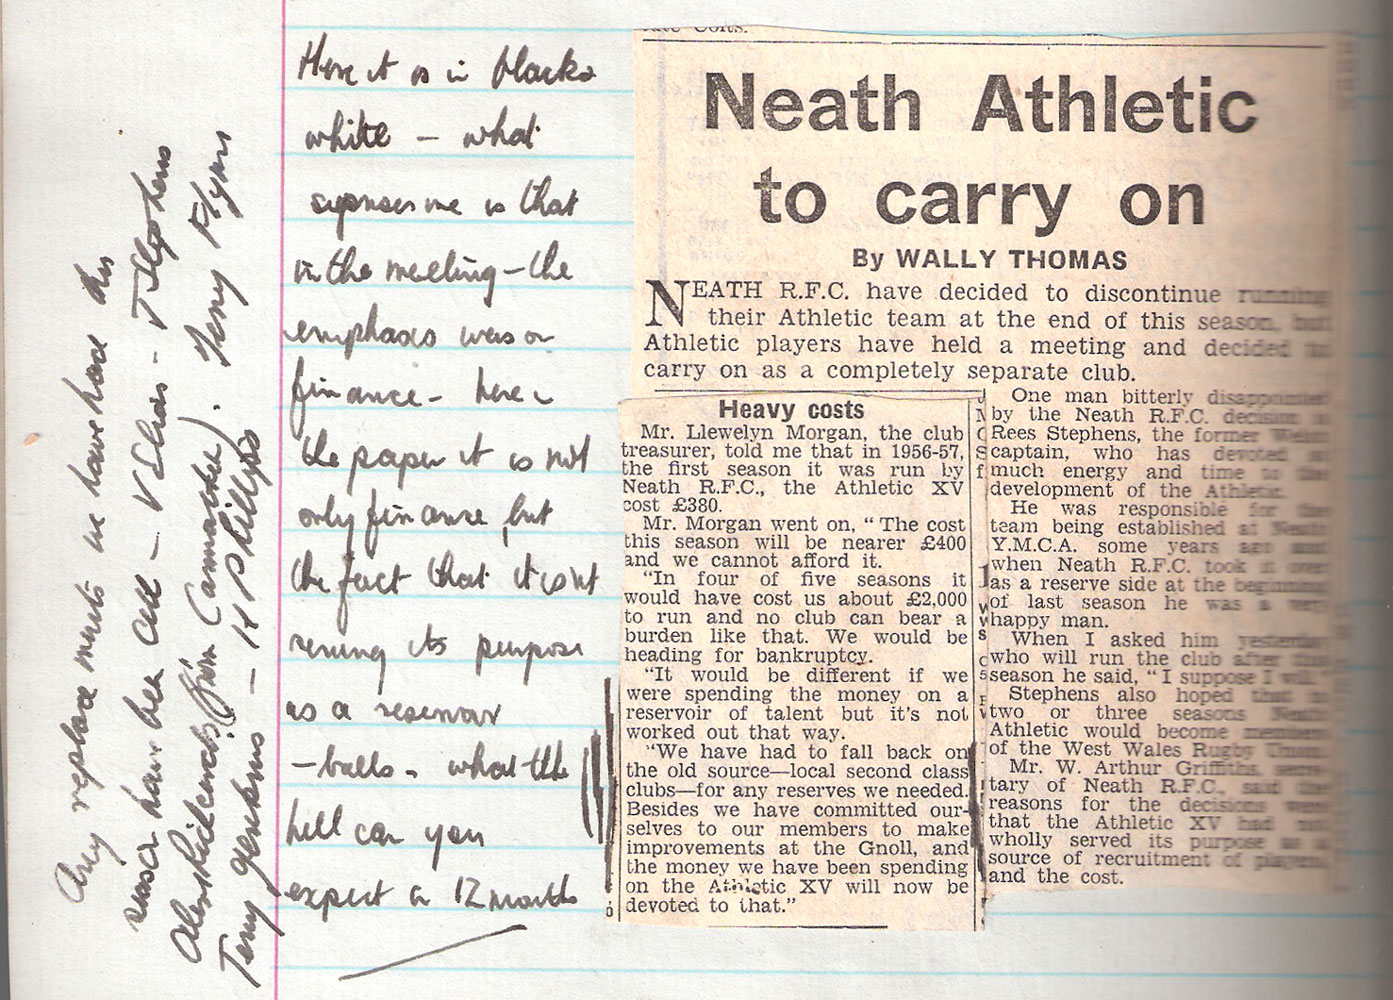 Any replacements we have had this
season have been Cecil - V Elias - T Stephens
Jim Cannacker). Terry Flynn
Terry Jenkins - H Phillips
Here it is in black &
white - what
suprises me is that
in the meeting - the
emphasis was on
finance - here in
the paper it is not
only finance, but
the fact that it isn't
serving its purpose
as a reservoir
- balls - what the
hell can you
expect in 12 months
Colts.
Neath Athletic
to carry on
By WALLY THOMAS
NEATH R.F.C. have decided to discontinue running
their Athletic team at the end of this season, but
Athletic players have held a meeting and decided to
carry on as a completely separate club.
Heavy costs
Mr. Llewelyn Morgan, the club
treasurer, told me that in 1956-57,
the first season it was run by
Neath R.F.C., the Athletic XV
cost £380.
Mr. Morgan went on, "The cost
this season will be nearer £400
and we cannot afford it.
"In four of five seasons it
would have cost us about £2,000
to run and no club can bear a
burden like that. We would be
heading for bankruptcy.
"It would be different if we
were spending the money on a
reservoir of talent but it's not
worked out that way.
"We have had to fall back on
the old source—local second class
clubs—for any reserves we needed.
Besides we have committed our-
selves to our members to make
improvements at the Gnoll, and
the money we have been spending
on the Athletic XV will now be
devoted to that."
One man bitterly disappointed
by the Neath R.F.C. decision is
Rees Stephens, the former Welsh
captain, who has devoted so
much energy and time to the
development of the Athletic.
He was responsible for the
team being established at Neath
Y.M.C.A. some years ago and
when Neath R.F.C. took it over
as a reserve side at the beginning
of last season he was a very
happy man.
When I asked him yesterday
who will run the club after this
season he said, "I suppose I will."
Stephens also hoped that in
two or three seasons Neath
Athletic would become members
of the West Wales Rugby Union.
Mr. W. Arthur Griffiths, secre-
tary of Neath R.F.C., said the
reasons for the decisions were
that the Athletic XV had not
wholly served its purpose as a
source of recruitment of players
and the cost.